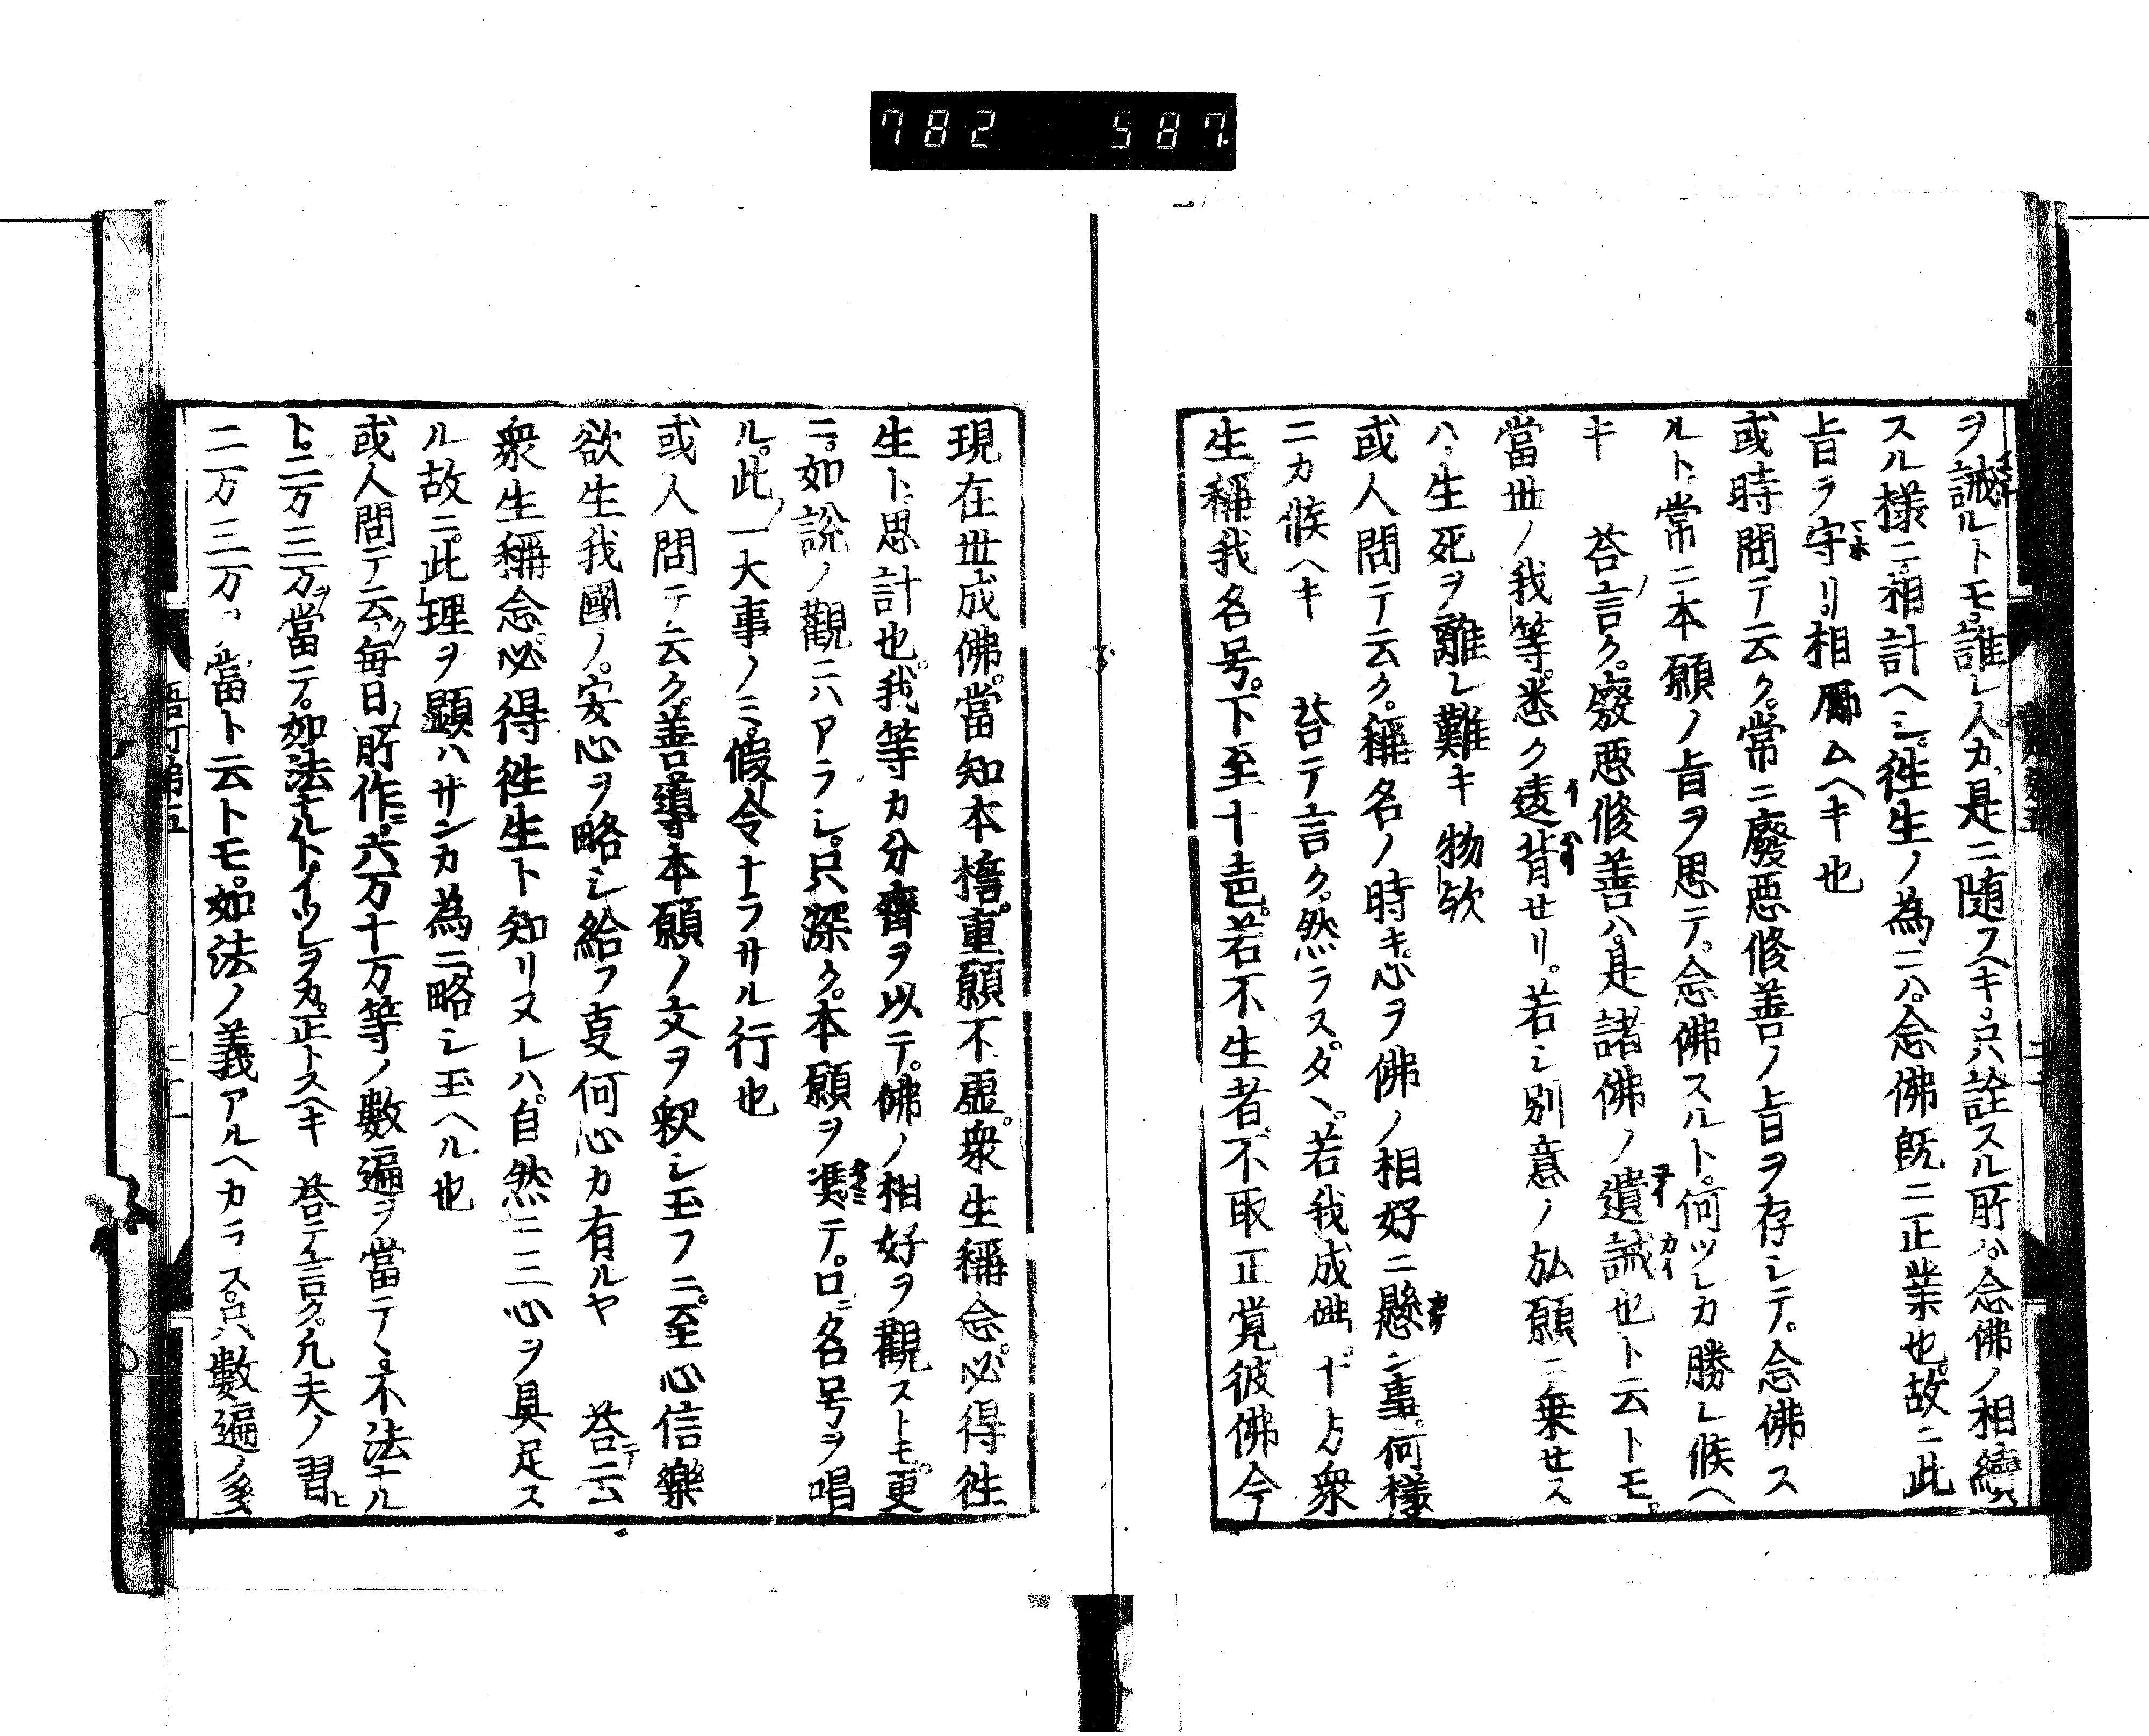 782 587.
ヲ誡ルトモ。誰レ人カ。是ニ随フヘキ。只詮スル所ハ。念佛ノ相續
スル様ニ。相計ヘシ。徃生ノ為ニハ。念佛既ニ正業也。故ニ此
旨ヲ守リ。相勵ムヘキ也
或時問テ云ク。常ニ廢惡修善ノ旨ヲ存シテ。念佛ス
ルト。常ニ本願ノ旨ヲ思テ。念佛スルト。何ツレカ勝レ候ヘ
キ　荅言ク。廢惡修善ハ。是諸佛ノ遺誡也ト云トモ。
當世ノ我等。悉ク違背セリ。若シ別意ノ弘願ニ乗セス
ハ。生死ヲ離レ難キ物欤
或人問テ云ク。稱名ノ時キ。心ヲ佛ノ相好ニ懸ン事。何様
ニカ候ヘキ　荅テ言ク。然ラス。タヽ。若我成佛。十方衆
生稱我名号。下至十声。若不生者。不取正覚彼佛今
現在世成佛。當知本擔。重願不虚。衆生稱念。必得徃
生ト。思計也。我等カ分齊ヲ以テ。佛ノ相好ヲ觀ストモ。更
ニ。如説ノ觀ニハアラシ。只深ク。本願ヲ憑テ。口ニ名号ヲ唱
ル。此一大事ノミ。假令ナラサル行也
或人問テ云ク。善導本願ノ文ヲ釈シ玉フニ。至心信樂
欲生我國ノ。安心ヲ略シ給フ叓何心カ有ルヤ　荅テ云
衆生稱念。必得徃生ト知リヌレハ。自然ニ三心ヲ具足ス
ル故ニ。此理ヲ顯ハサンカ為ニ略シ玉ヘル也
或人問テ云ク。毎日ノ所作ニ。六万十万等ノ數遍ヲ當テヽ。不法ナル
ト。二万三万ヲ當ニテ。如法ナルト。イツレヲカ。正トスヘキ　荅テ言ク。凡夫ノ習ヒ
二万三万。當ト云トモ。如法ノ義アルヘカラス。只數遍ノ多